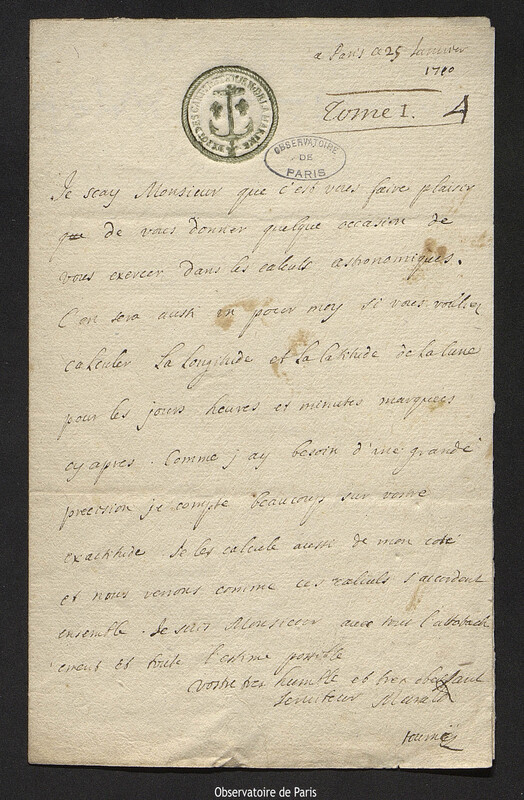 a Paris ce 25 Janvier
1710
Tome I. 4
OBSERVATOIRE
DE
PARIS
Je scay Monsieur que c'est vous faire plaisir
que de vous donner quelque occasion de
vous exercer dans les calculs astronomiques.
C'en sera aussi un pour moy si vous voulliez
calculer la longitude et la latitude de la lune
pour les jours heures et minutes marquees
cy apres. Comme j'ay besoin d'une grande
precision je compte beaucoup sur vostre
exactitude Je les calcule aussi de mon coté
et nous verrons comme ces calculs s'accordent
ensemble. Je suis Monsieur avec tout l'attach
ement et toute l'estime possible
vostre tres humble et tres obeissant
serviteur Maraldi
tournez
Observatoire de Paris